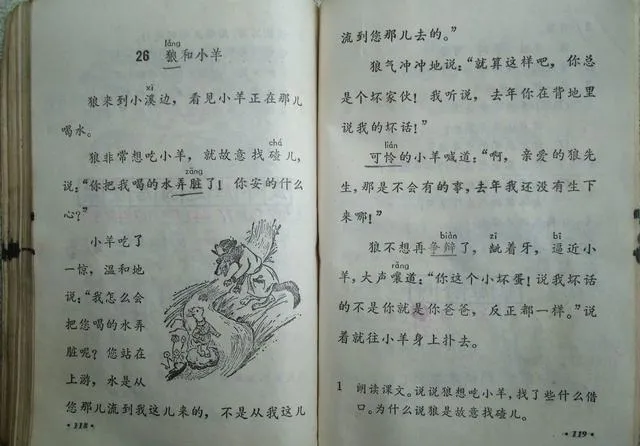 láng
26 狼和小羊
xī
狼来到小溪边，看见小羊正在那儿
喝水。
chá
狼非常想吃小羊，就故意找碴儿，
zāng
说：“你把我喝的水弄脏了！你安的什么
心？”
小羊吃了
一惊，温和地
说：“我怎么会
把您喝的水弄
脏呢？您站在
上游，水是从
您那儿流到我这儿来的，不是从我这儿
·118·
流到您那儿去的。”
狼气冲冲地说：“就算这样吧，你总
是个坏家伙！我听说，去年你在背地里
说我的坏话！”
lián
可怜的小羊喊道：“啊，亲爱的狼先
生，那是不会有的事，去年我还没有生下
来哪！”
biàn zī bī
狼不想再争辩了，龇着牙，逼近小
rǎng
羊，大声嚷道：“你这个小坏蛋！说我坏话
的不是你就是你爸爸，反正都一样。”说
着就往小羊身上扑去。
1 朗读课文。说说狼想吃小羊，找了些什么借
口。为什么说狼是故意找碴儿。
·119·